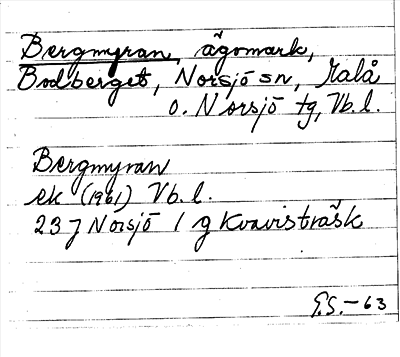 Bergmyran, ägomark,
Bodberget, Norsjö sn, Malå
o. Norsjö tg, Vb. l.
Bergmyran
ek (1961) Vb. l.
23 J Norsjö 1 g Kvavisträsk
G.S. -63